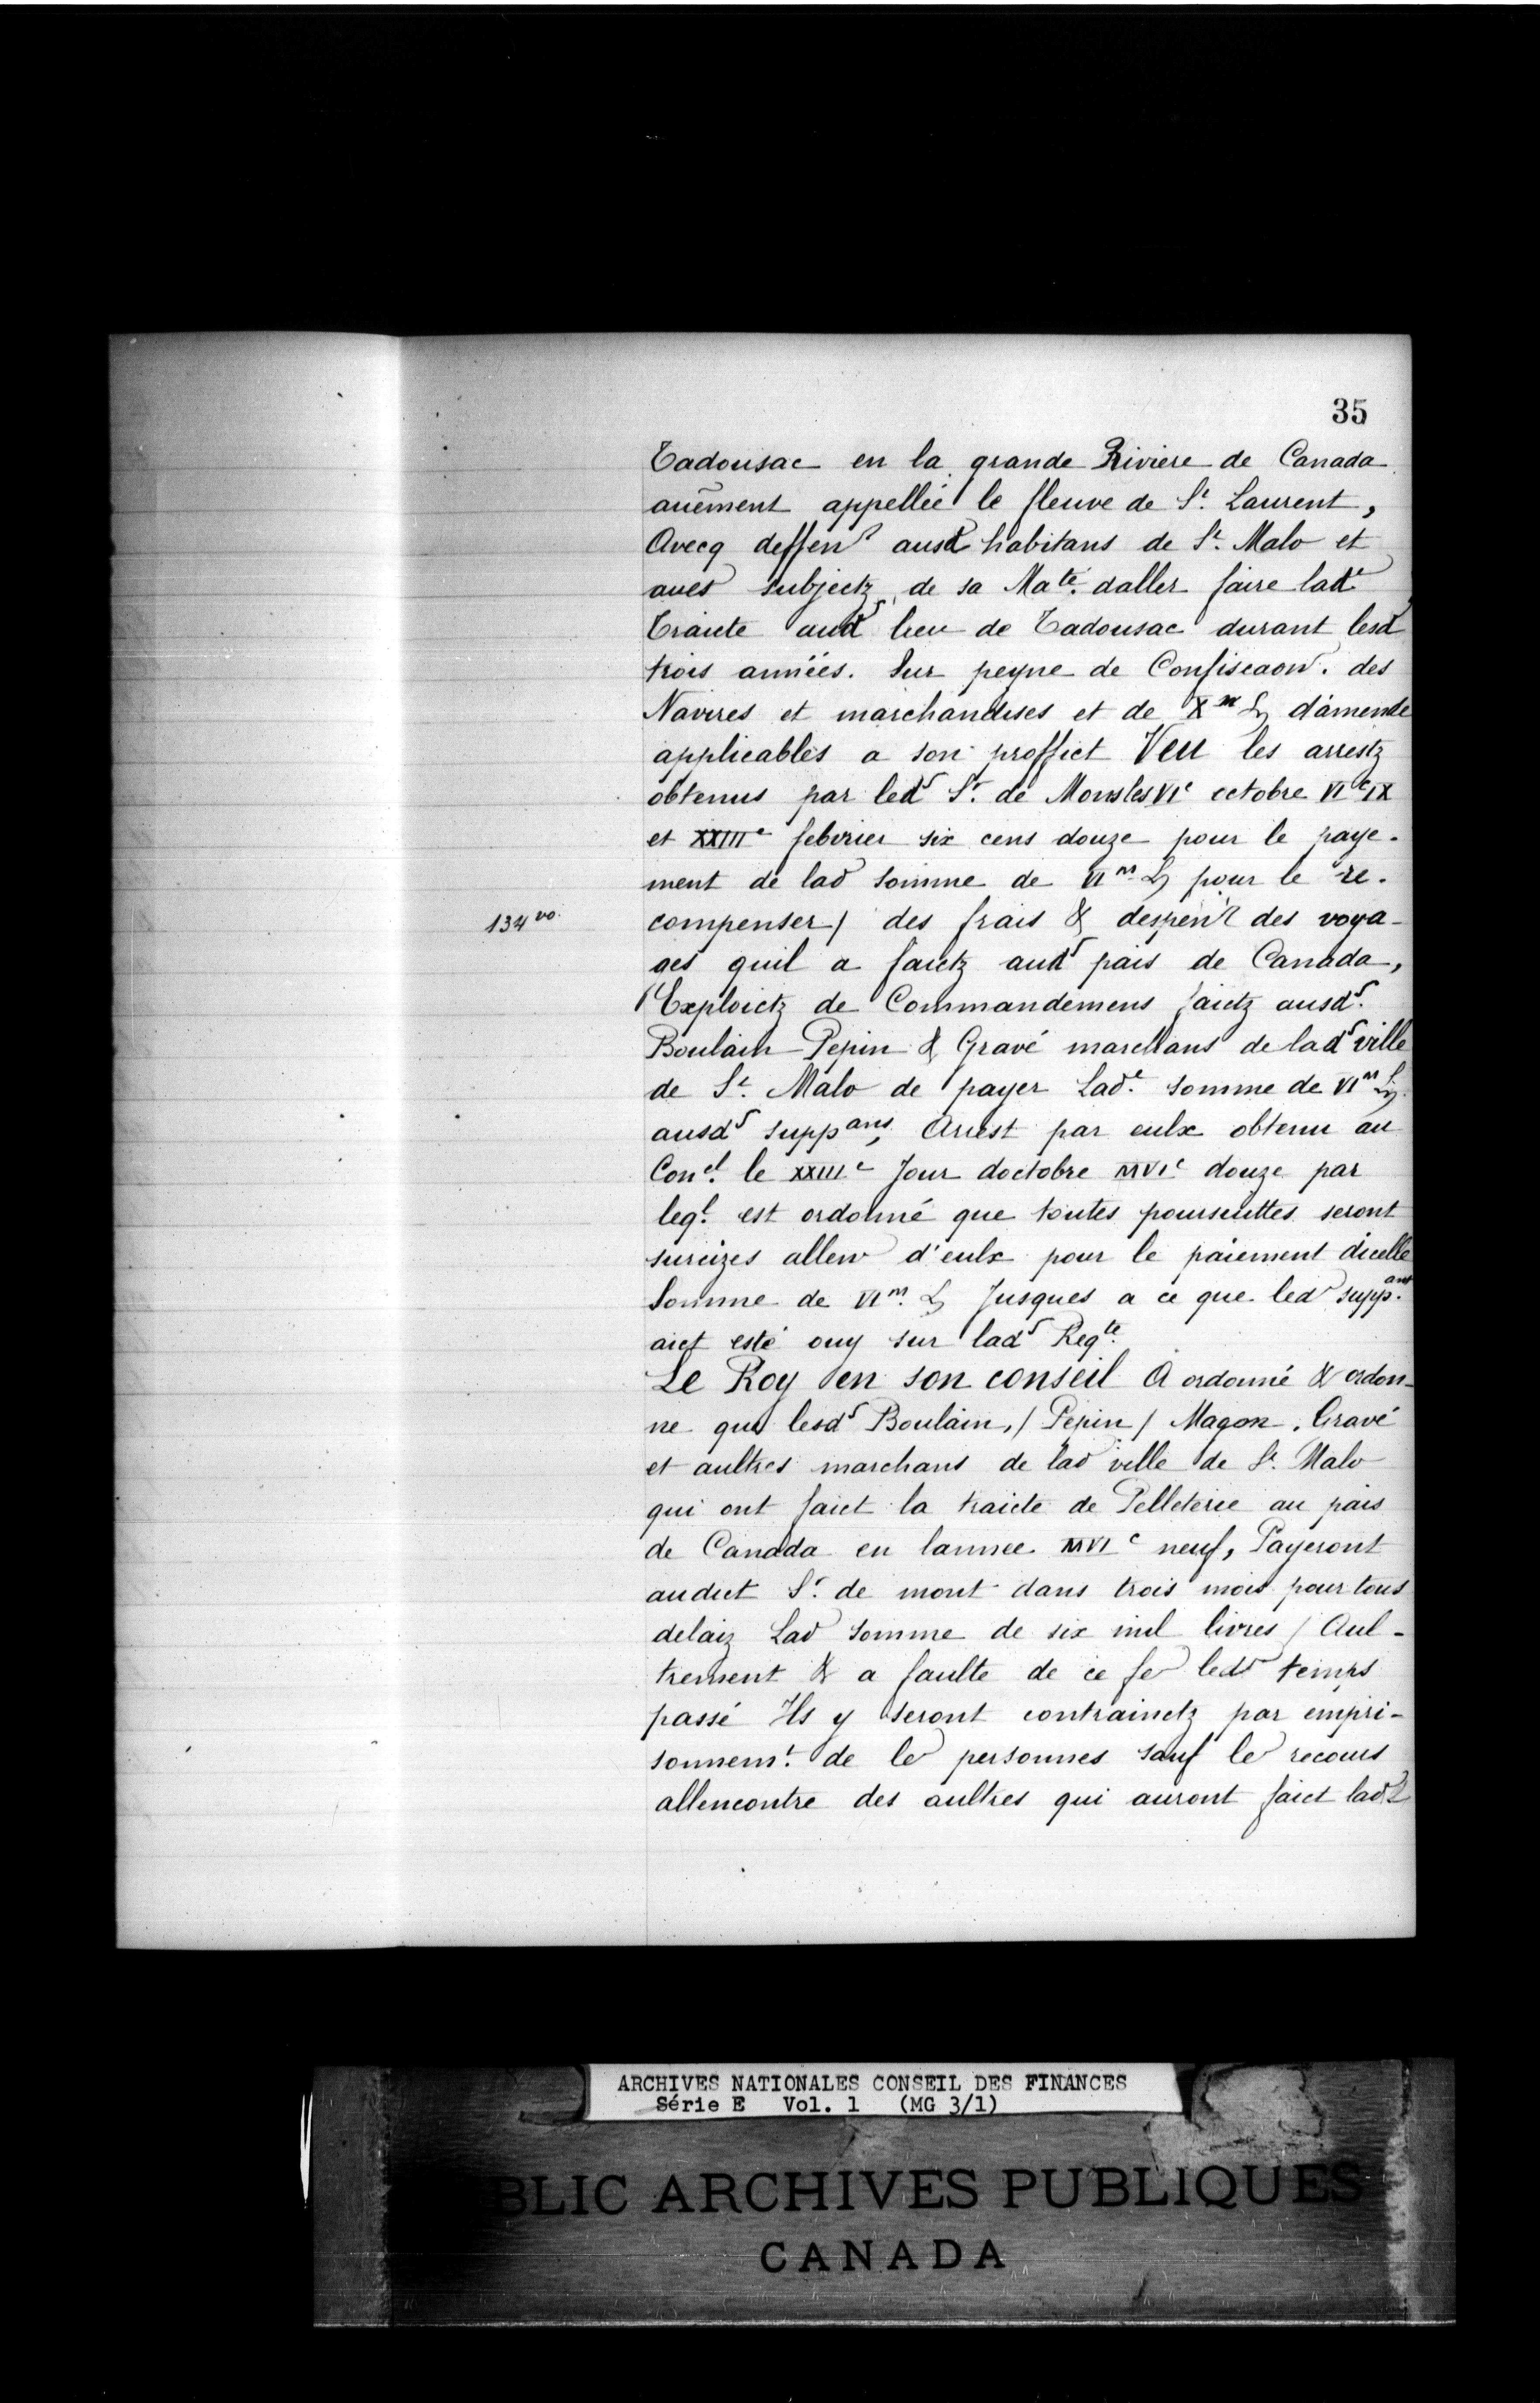 35
Tadousac en la grande Riviere de Canada
auẽment appellée le fleuve de St. Laurent,
Avecq deffen ausd habitans de St. Malo et
aues subjectz de sa Maté. daller faire lade
Traicte aud lieu de Tadousac durant lesd
trois années. Sur peyne de Confiscaon. des
Navires et marchandises et de Xm L d'amende
applicables a son proffict Veu les arrestz
obtenus par led Sr. de Monsles VIe octobre VIcIX
et XXIIIe febvrier six cens douze pour le paye-
ment de lad somme de VIm L pour le re-
134 vo.
compenser / des frais & despen des voya-
ges quil a faictz aud pais de Canada,
Exploictz de Commandemens faictz ausd.
Boulain Pepin & Gravé marchans de lad ville
de St. Malo de payer Lade. somme de VIm L
ausd suppans, Arrest par eulx obtenu au
Conel. le XXIIIe Jour doctobre MVIc douze par
leql. est ordonné que toutes poursuittes seront
surcizes allen d'eulx pour le paiement dicelle
Somme de VIm. L Jusques a ce que led suppant.
aict esté ouy sur lad Reqte.
Le Roy en son conseil A ordonné & ordon-
ne que lesd Boulain, / Pepin / Magon, Gravé
et aultres marchans de lad ville de St. Malo
qui ont faict la traicte de Pelleterie au pais
de Canada en lannee MVIc neuf, Payeront
audict Sr. de mont dans trois mois pour tous
delaiz Lad somme de six mil livres / Aul-
trement & a faulte de ce fe led temps
passé Ils y seront contrainctz par empri-
sonnemt. de le personnes sauf le recours
allencontre des aultres qui auront faict lad
ARCHIVES NATIONALES CONSEIL DES FINANCES
Série E Vol. 1 (MG 3/1)
BLIC ARCHIVES PUBLIQUES
CANADA